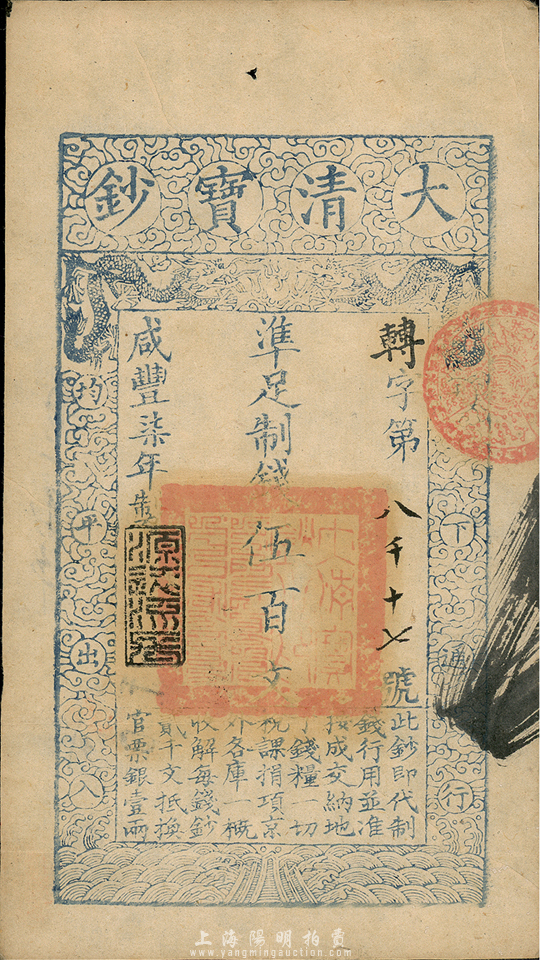 大清寶鈔
轉字第八千十七號
準足制錢伍百文
咸豐柒年製
下通行
均平出入
此鈔即代制
錢行用並准
按成交納地
丁錢糧一切
稅課捐項京
外各庫一概
收解每錢鈔
貳千文抵換
官票銀壹兩
源遠流長
上海陽明拍賣
www.yangmingauction.com